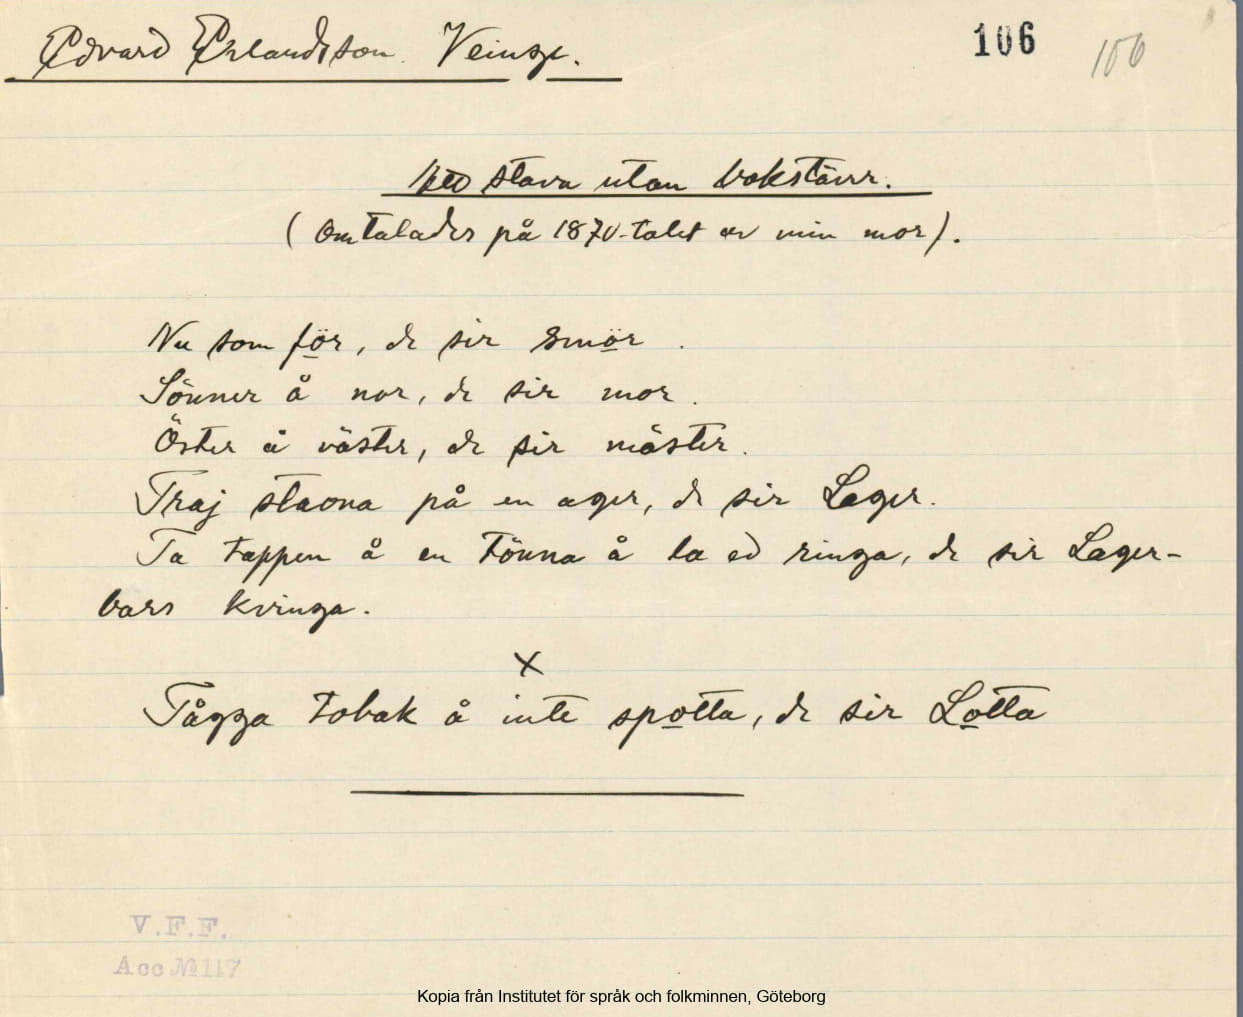 Edvard Erlandsson. Veinge.
106 106
Ked stava utan bokstäver.
(Omtalades på 1870-talet av min mor).
Nu somför, de sir smör.
Sönner å nor, de sir mor.
Öster å väster, de sir mäster.
Traj staona på en ager, de sir Lager.
Ta tappen å en tönna å la ed ringa, de sir Lager-
bars kvinga.
x
Tågga tobak å inte spotta, de sir Lotta
V.F.F.
Acc № 117
Kopia från Institutet för språk och folkminnen, Göteborg